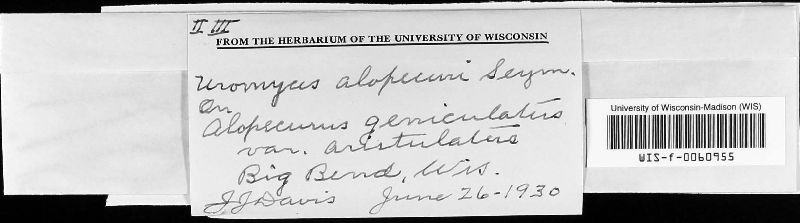 II III
FROM THE HERBARIUM OF THE UNIVERSITY OF WISCONSIN
Uromyces alopecuri Seym.
On
Alopecurus geniculatus
var. aristulatus
Big Bend, Wis.
JJDavis June 26-1930
University of Wisconsin-Madison (WIS)
WIS-f-0060955